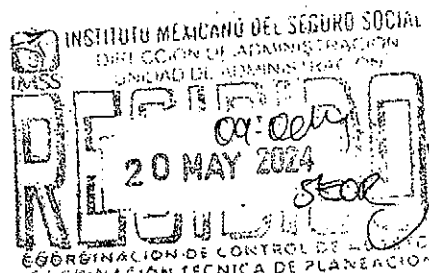 INSTITUTO MEXICANO DEL SEGURO SOCIAL
DIRECCIÓN DE ADMINISTRACIÓN
UNIDAD DE ADMINISTRACIÓN
IMSS
RECIBIDO
20 MAY 2024
COORDINACIÓN DE CONTROL DE
COORDINACIÓN TÉCNICA DE PLANEACIÓN